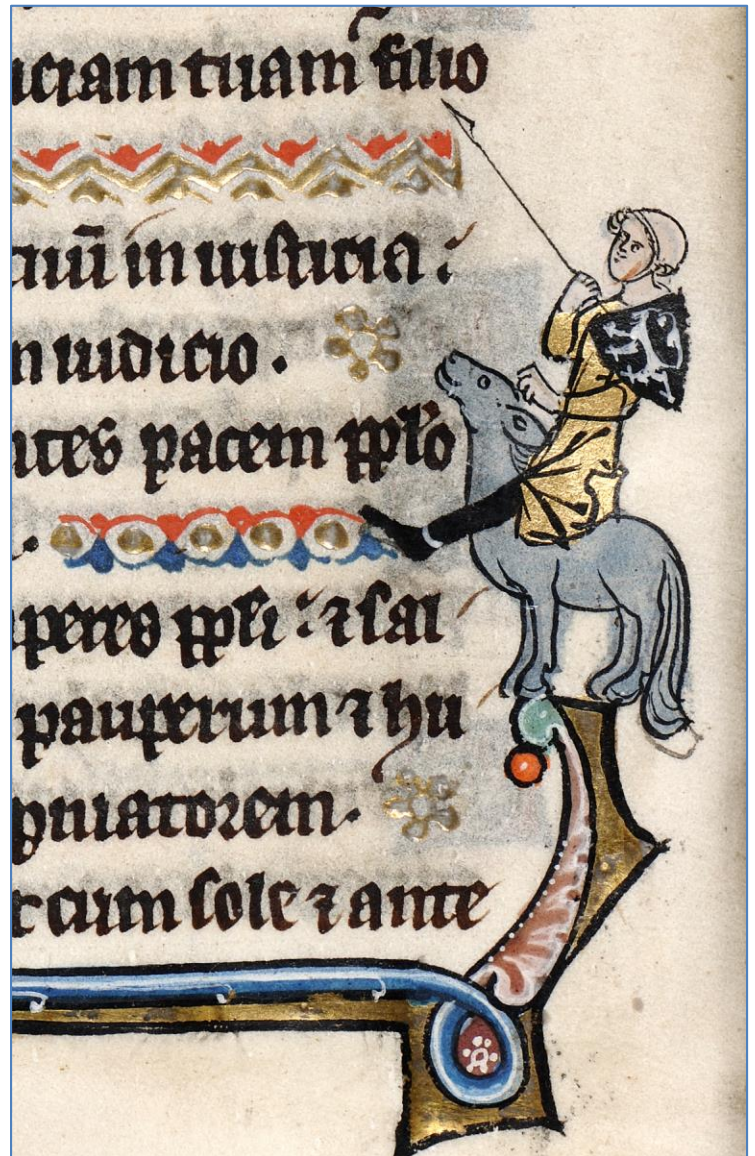 ticiam tuam filio
tuū in iusticia :
n iudicio .
ntes pacem pplo
.
uperes ppli : ⁊ sal
pauperum ⁊ hu
pniatorem .
t cum sole ⁊ ante